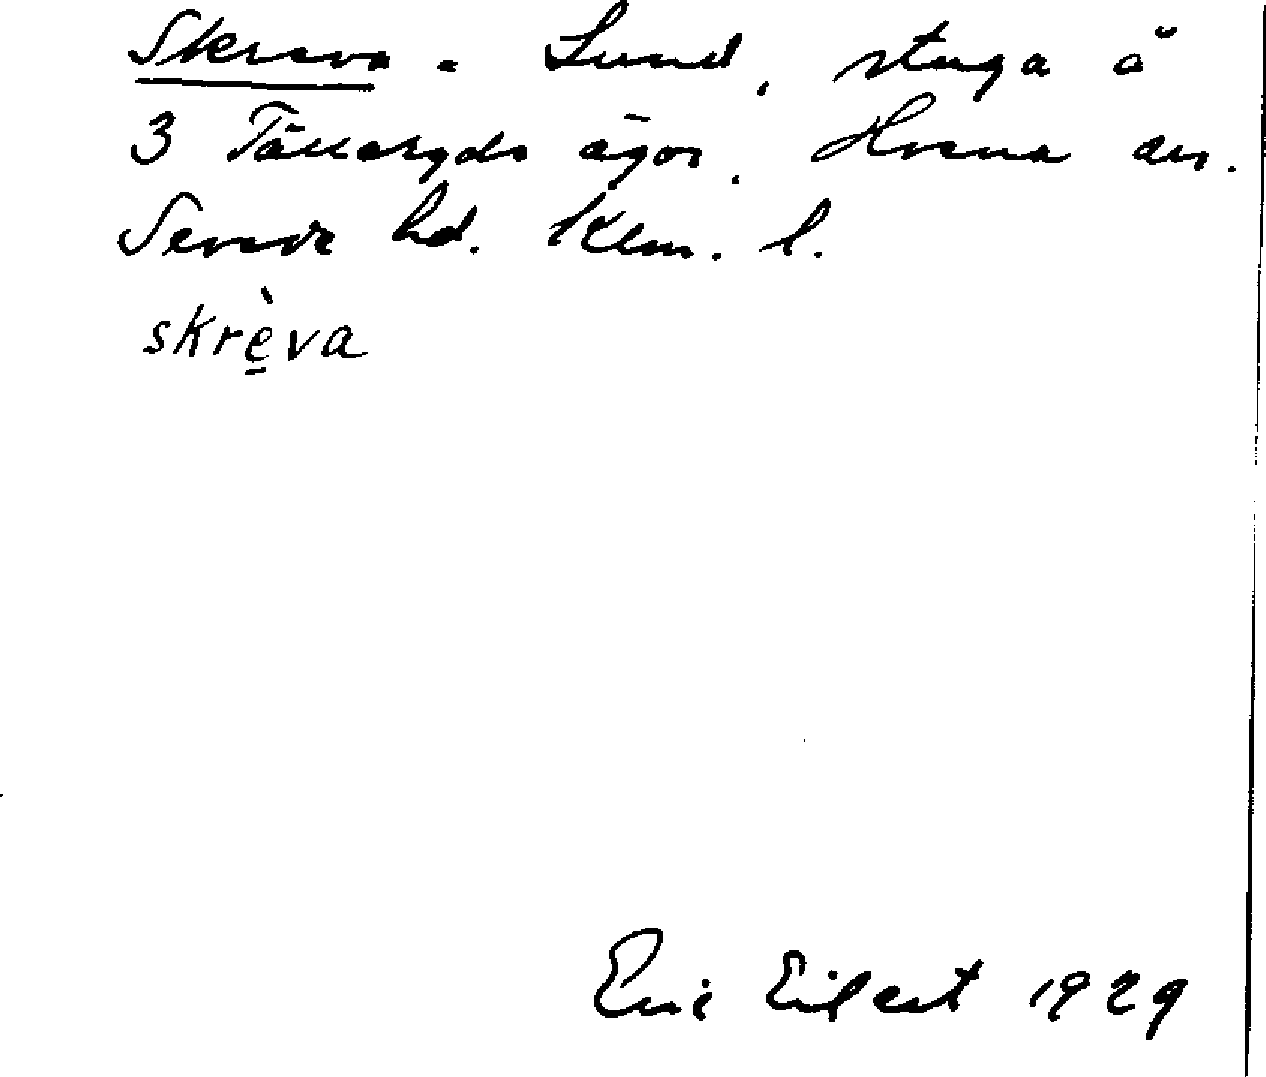 Skreva - Lund, stuga å
3 Tälleryds ägor. Hvena sn.
Sevede hd. Klm. l.
skrẹ̀va
Eric Eilert 1929